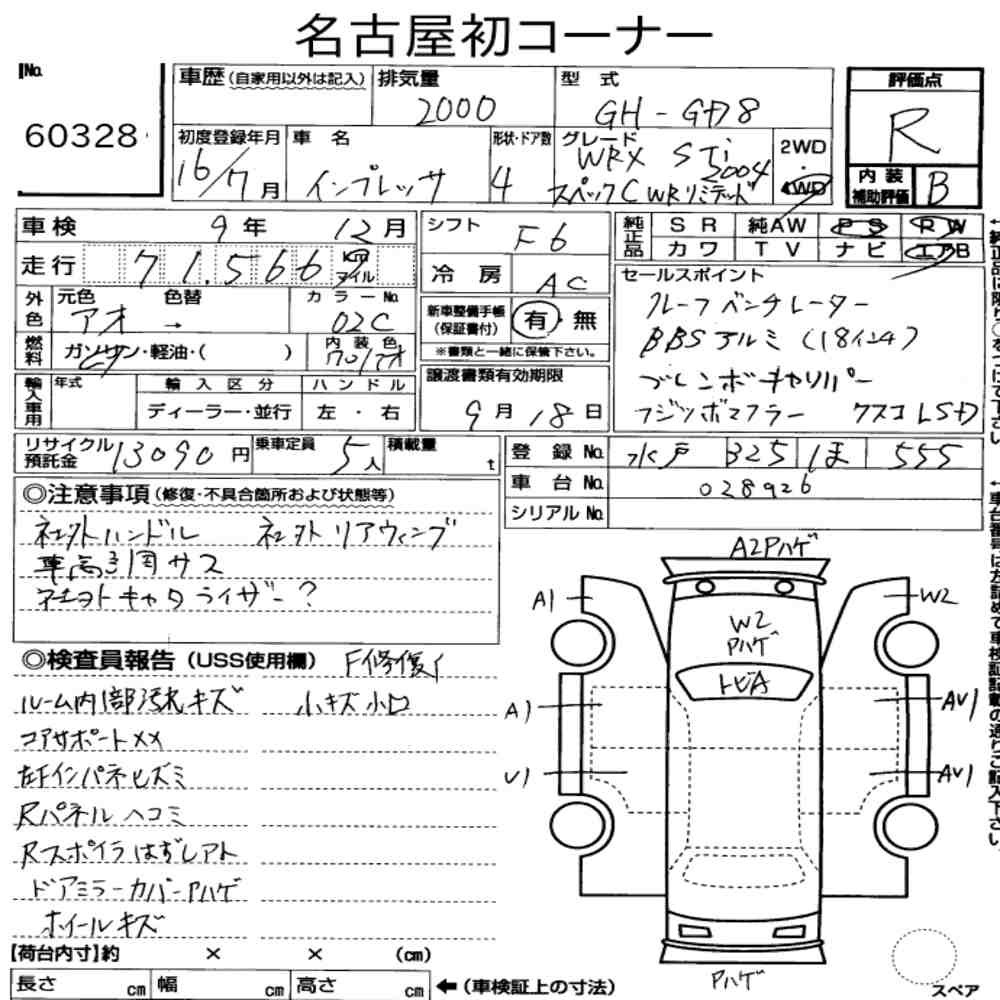 名古屋初コーナー
No. 60328
車歴（自家用以外は記入）
排気量 2000
型式 GH-GD8
評価点 R
初度登録年月 16/7月
車名 インプレッサ
形状・ドア数 4
グレード WRX STi 2004
スペックC WRリミテッド
2WD・4WD
内装補助評価 B
車検 9年 12月
走行 71,566 km マイル
シフト F6
冷房 AC
純正品 SR 純AW PS PW
カワ TV ナビ エアB
セールスポイント
ルーフベンチレーター
BBSアルミ（18インチ）
ブレンボキャリパー
フジツボマフラー クスコLSD
外色 元色 アオ → 色替
カラーNo. 02C
燃料 ガソリン・軽油・( )
内装色 クロ/アオ
新車整備手帳（保証書付） 有・無
※書類と一緒に保管下さい。
譲渡書類有効期限 9月18日
輸入車用 年式 輸入区分 ハンドル
ディーラー・並行 左・右
リサイクル預託金 13090円
乗車定員 5人
積載量 t
登録No. 水戸 325 ほ 555
車台No. 028926
シリアルNo.
◎注意事項（修復・不具合箇所および状態等）
社外ハンドル 社外リアウィング
車高調サス
社外キャタライザー？
◎検査員報告（USS使用欄） F修復イ
ルーム内部汚れキズ 小キズ小凹
コアサポートXX
左Fインパネヒズミ
Rパネルヘコミ
Rスポイラはずしアト
ドアミラーカバーPハゲ
ホイールキズ
A2Pハゲ
A1
W2
W2
Pハゲ
トビA
A1
AU1
U1
AU1
Pハゲ
スペア
【荷台内寸】約 × × （cm）
長さ cm 幅 cm 高さ cm ←（車検証上の寸法）